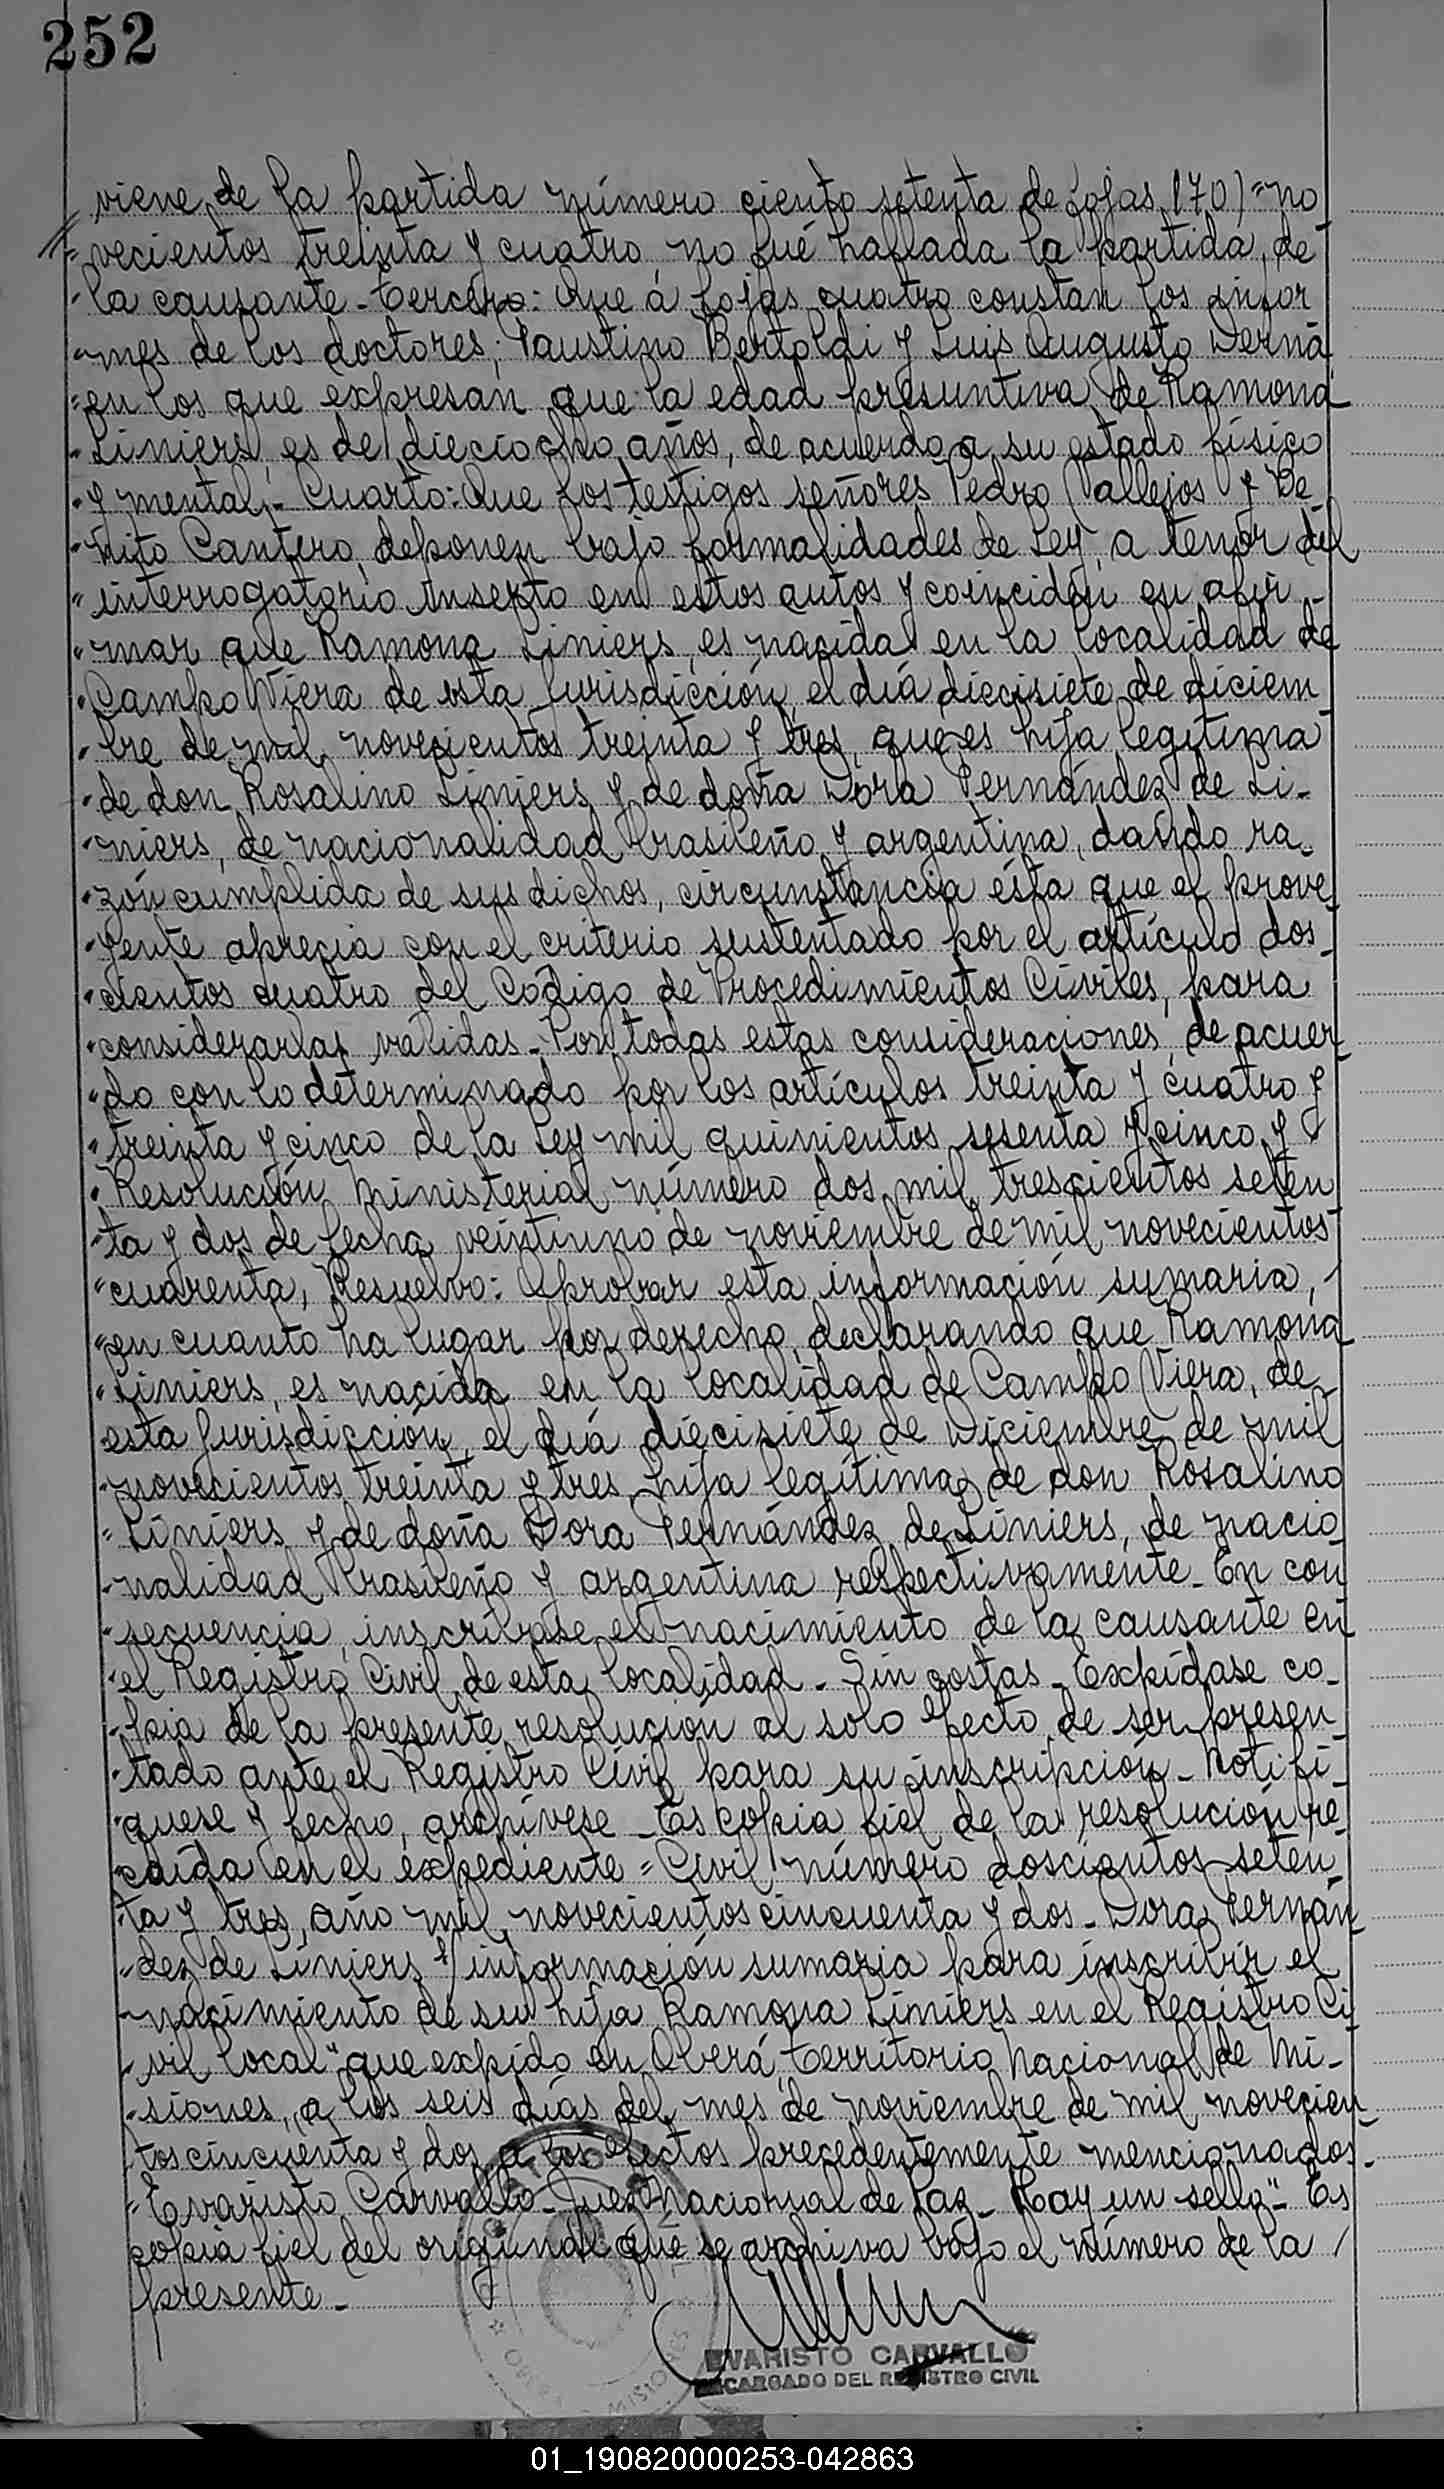 252
viene de la partida número ciento setenta de fojas 170) "no
"vecientos treinta y cuatro no fué hallada la partida, de
"la causante - Tercero: Que á fojas cuatro constan los infor
"mes de los doctores; Faustino Bertoldi y Luis Augusto Derna
"en los que expresan que la edad presuntiva de Ramona
"Liniers, es de dieciocho años, de acuerdo a su estado físico
"y mental.- Cuarto: Que los testigos señores Pedro Vallejos y Be
"nito Cantero, deponen bajo formalidades de Ley, a tenor del
"interrogatorio inserto en estos autos y coinciden en afir-
"mar que Ramona Liniers, es nacida en la localidad de
"Campo Viera de esta Jurisdicción, el día diecisiete de diciem
"bre de mil novecientos treinta y tres, que es hija legítima
"de don Rosalino Liniers y de doña Dora Fernández de Li-
"niers, de nacionalidad brasileño y argentina, dando ra-
"zón cumplida de sus dichos, circunstancia ésta que el prove
"yente aprecia con el criterio sustentado por el artículo dos-
"cientos cuatro del Código de Procedimientos Civiles, para
"considerarlas validas - Por todas estas consideraciones, de acuer
"do con lo determinado por los artículos treinta y cuatro y
"treinta y cinco de la Ley mil quinientos sesenta y cinco y
"Resolución Ministerial número dos mil trescientos seten
"ta y dos de fecha veintiuno de noviembre de mil novecientos
"cuarenta, Resuelvo: Aprobar esta información sumaria, /
"en cuanto ha lugar por derecho, declarando que Ramona
"Liniers, es nacida en la localidad de Campo Viera, de
esta Jurisdicción, el día diecisiete de Diciembre de mil
"novecientos treinta y tres hija legítima de don Rosalino
"Liniers y de doña Dora Fernández de Liniers, de nacio
"nalidad Brasileño y argentina respectivamente - En con
"secuencia, inscríbase el nacimiento de la causante en
"el Registro Civil de esta localidad - Sin costas - Expídase co-
"pia de la presente resolución al solo efecto de ser presen
"tado ante el Registro Civil para su inscripción - Notifí-
"quese y fecho, archívese - Es copia fiel de la resolución re-
"caída en el expediente "Civil número doscientos seten
"ta y tres, año mil novecientos cincuenta y dos - Dora Fernán
"dez de Liniers s/ información sumaria para inscribir el
"nacimiento de su hija Ramona Liniers en el Registro Ci
"vil local" que expido en Oberá, Territorio Nacional de Mi-
"siones, a los seis días del mes de noviembre de mil novecien
tos cincuenta y dos, a los efectos precedentemente mencionados-
"Evaristo Carvallo - Juez Nacional de Paz - Hay un sello"- Es
copia fiel del original que se archiva bajo el número de la /
presente -
EVARISTO CARVALLO
ENCARGADO DEL REGISTRO CIVIL
01_190820000253-042863